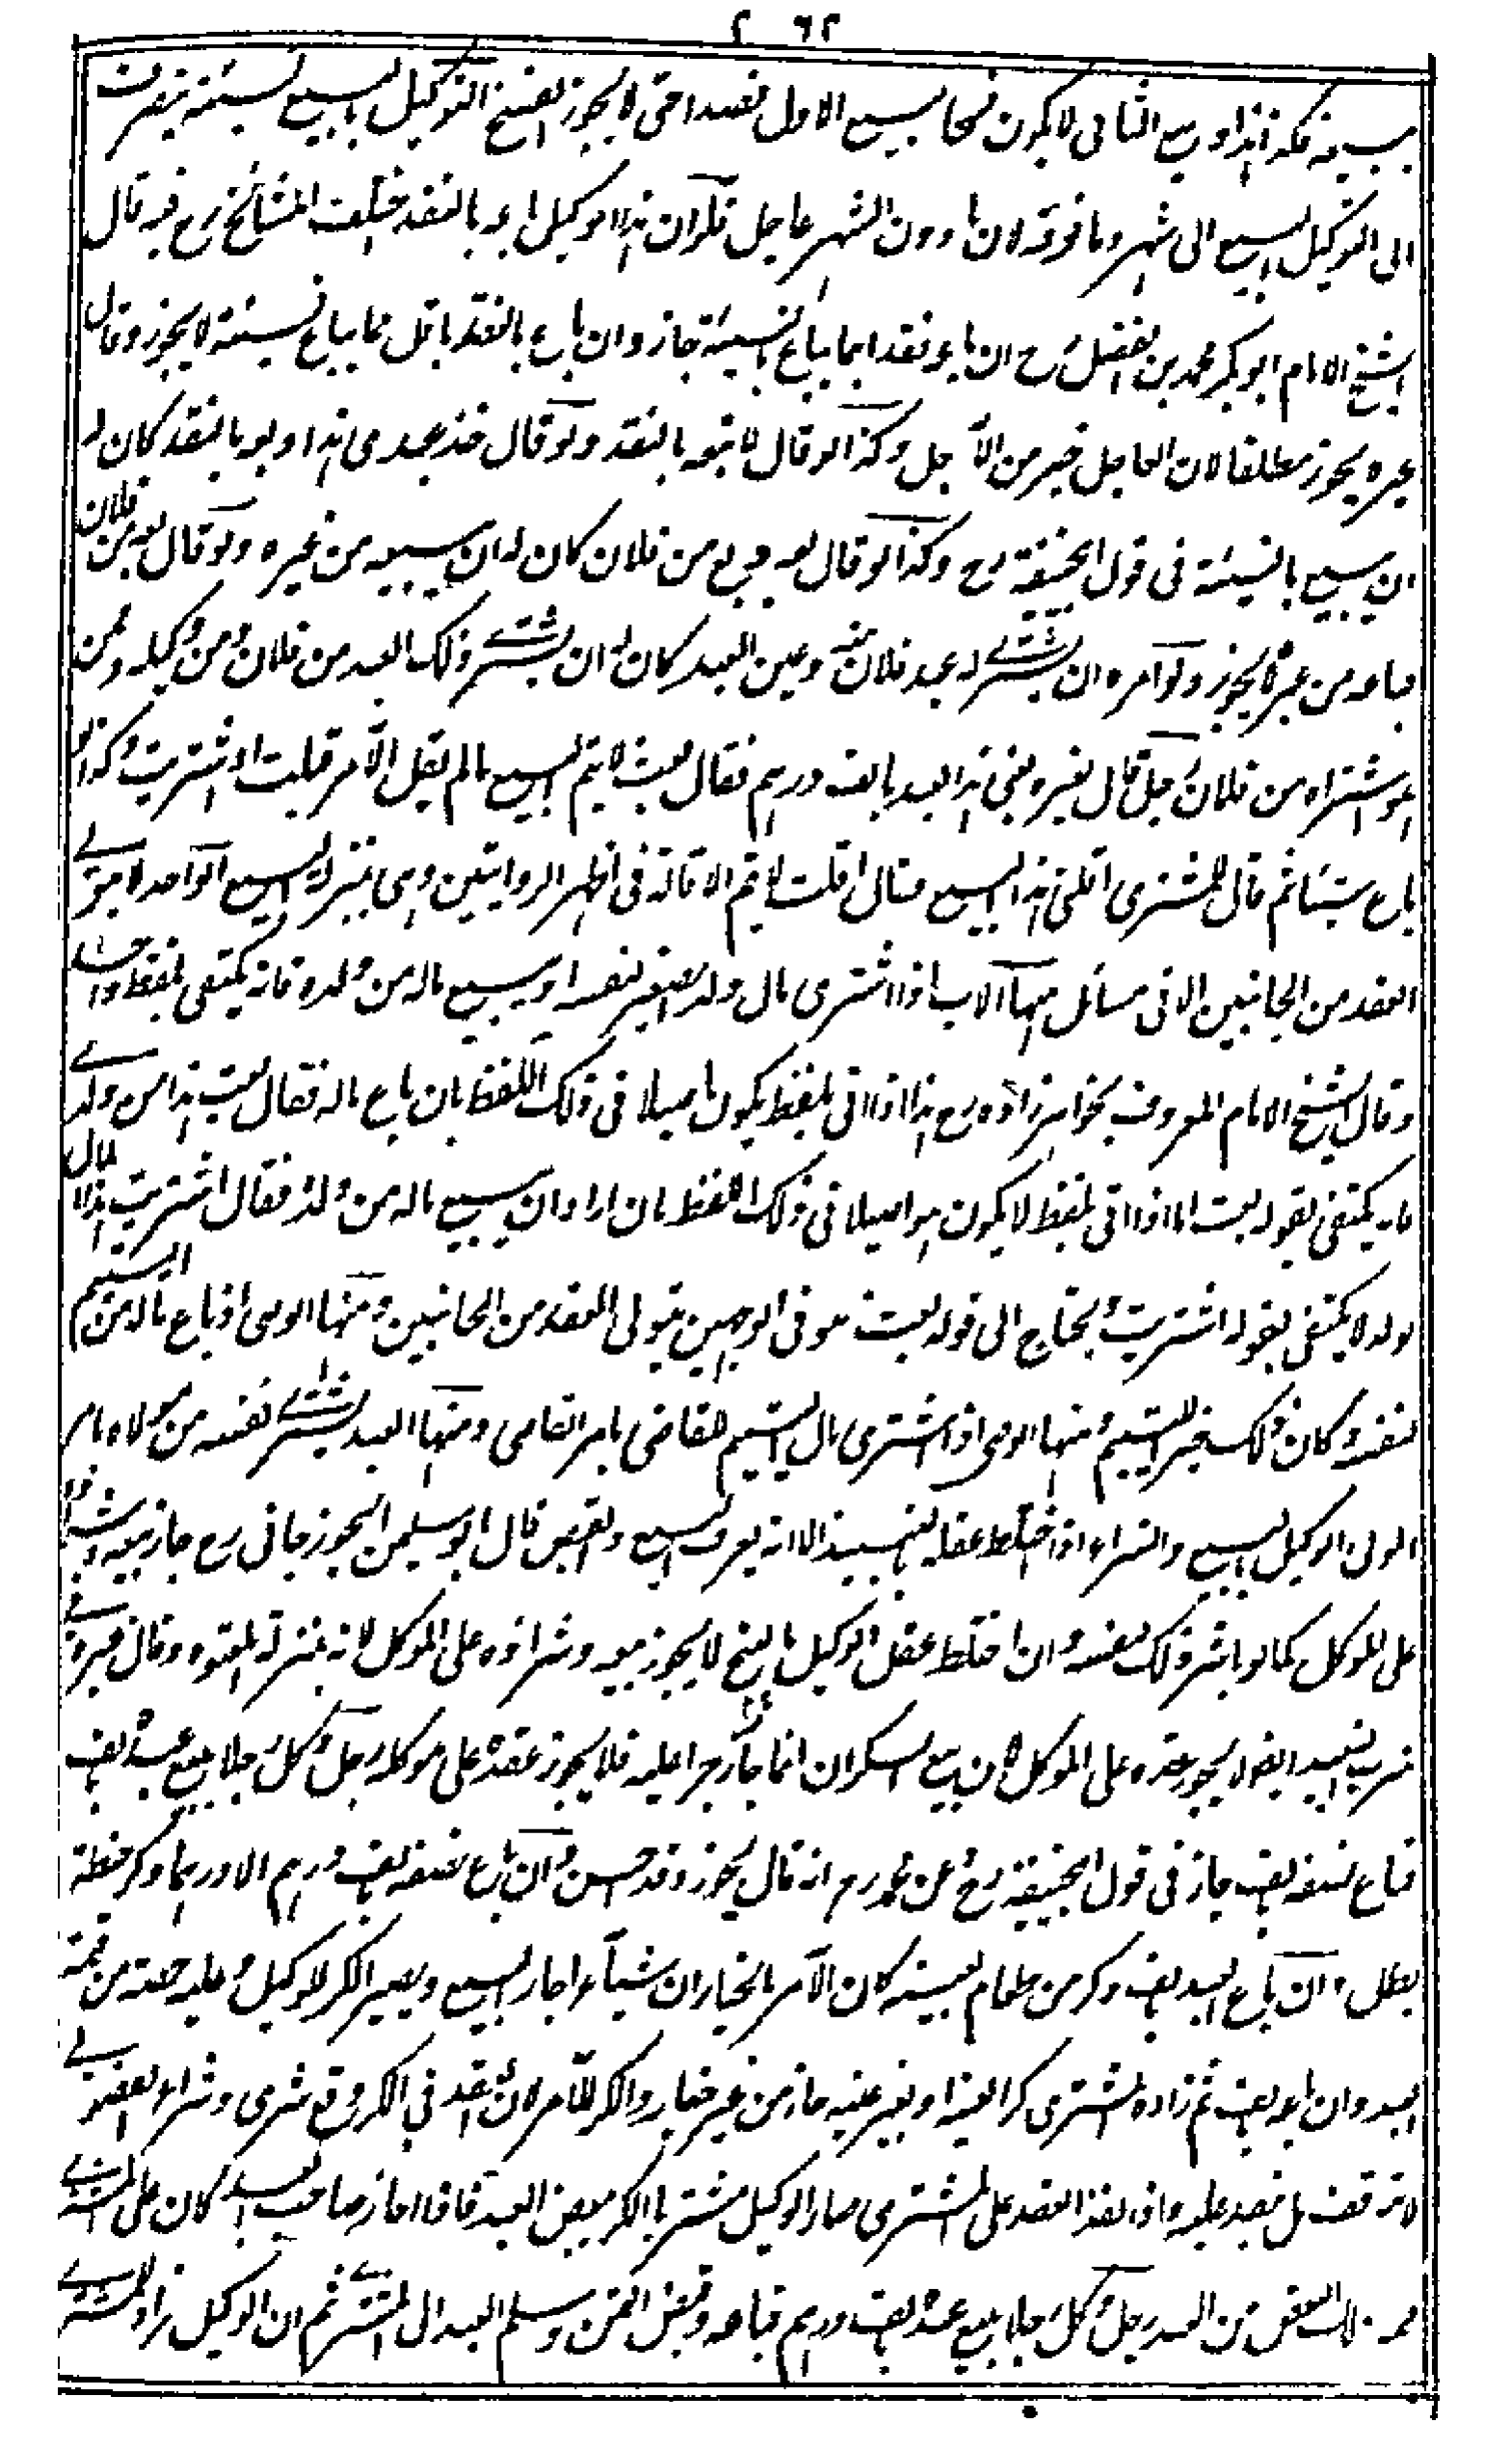 ٢٦٢
ببيعه فكذا هذا وبيع الثاني لا يكون فسخا لبيع الاول قصدا حتى لا يجوز الفسخ التوكيل بالبيع نسيئة ينصرف
الى التوكيل بالبيع الى شهر وما فوقه لان ما دون الشهر عاجل فلو ان هذا الوكيل باعه بالنقد اختلف المشائخ رح فيه قال
الشيخ الامام ابو بكر محمد بن الفضل رح ان باعه نقدا بما يباع بالنسيئة جاز وان باع بالنقد باقل مما يباع نسيئة لا يجوز وقال
غيره يجوز مطلقا لان العاجل خير من الآجل وكذا لو قال لا تبعه بالنقد ولو قال خذ عبدي هذا وبعه بالنقد كان له
ان يبيع بالنسيئة في قول ابيحنيفة رح وكذا لو قال بعه وبع من فلان كان له ان يبيعه من غيره ولو قال بعه من فلان
فباعه من غيره لا يجوز ولو امره ان يشتري له عبد فلان منه وعين العبد كان له ان يشتري ذلك العبد من فلان ومن وكيله وممن
اشتراه من فلان رجل قال لغيره بعني هذا العبد بالف درهم فقال بعت لا يتم البيع ما لم يقل الآمر قبلت او اشتريت وكذا لو
باع شيئا ثم قال للمشتري اقلني هذا البيع فقال اقلت لا يتم الاقالة في اظهر الروايتين وهي بمنزلة البيع الواحد لا يتولى
العقد من الجانبين الا في مسائل منها الاب اذا اشترى مال ولده الصغير لنفسه او يبيع ماله من ولده فانه يكتفي بلفظ واحد
وقال الشيخ الامام المعروف بخواهرزاده رح هذا اذا اتى بلفظ يكون اصيلا في ذلك اللفظ بان باع ماله فقال بعت هذا من ولدي
فانه يكتفي بقوله بعت اما اذا اتى بلفظ لا يكون هو اصيلا في ذلك اللفظ بان اراد ان يبيع ماله من ولده فقال اشتريت هذا المال
لولده لا يكتفي بقوله اشتريت ويحتاج الى قوله بعت هو في الوجهين يتولى العقد من الجانبين ومنها الوصي اذا باع ماله من اليتيم
لنفسه وكان ذلك خير لليتيم ومنها الوصي اذا اشترى مال اليتيم للقاضي بامر القاضي ومنها العبد يشتري نفسه من مولاه بامر
المولى الوكيل بالبيع والشراء اذا اختلط عقله بالنبيذ الا انه يعرف البيع والقبض قال ابو سليمن الجوزجاني رح جاز بيعه وشراؤه
على الموكل كما لو باشر ذلك بنفسه وان اختلط عقل الوكيل بالبنج لا يجوز بيعه وشراؤه على الموكل لانه بمنزلة المعتوه وقال غيره في
شرب النبيذ ايضا لا يجوز عقده على الموكل لان بيع السكران انما جاز زجرا عليه فلا يجوز عقده على موكله رجل وكل رجلا ببيع عبده بالف
فباع نصفه بالف جاز في قول ابيحنيفة رح وعن محمد رح انه قال يجوز وقد احسن وان باع نصفه بالف درهم الا درهما وكر حنطة
بطل وان باع العبد بالف وكر من طعام بعينه كان الآمر بالخيار ان شاء اجاز البيع ويصير الكر للوكيل وعليه حصته من قيمة
العبد وان باعه بالف ثم زاده المشتري كرا بعينه او بغير عينه جاز من غير خيار والكر للآمر لان العقد في الكر وقع شرى وشراء الفضولي
لا يتوقف بل ينفذ عليه واذا نفذ العقد على المشتري صار الوكيل مشتريا الكر ببعض العبد فاذا اجاز صاحب العبد كان على المشتري
قيمة ذلك البعض من العبد رجل وكل رجلا ببيع عبده بالف درهم فباعه وقبض الثمن وسلم العبد الى المشتري ثم ان الوكيل زاد للمشتري